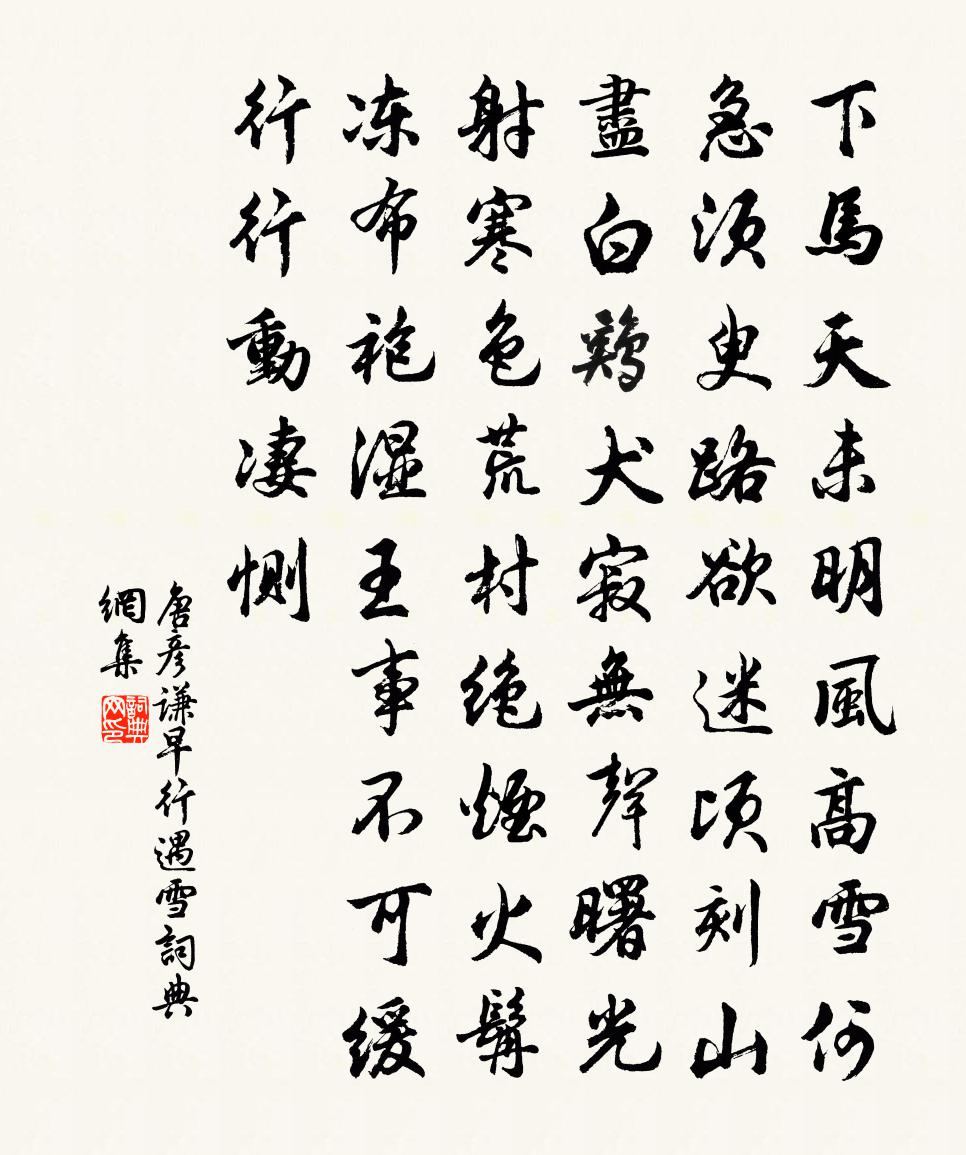 下馬天未明風高雪何
急須臾路欲迷頃刻山
盡白鷄犬寂無聲曙光
射寒色荒村绝煙火髯
冻布袍湿王事不可缓
行行動凄惻
唐彦谦早行遇雪詞典
網集
詞典
网印